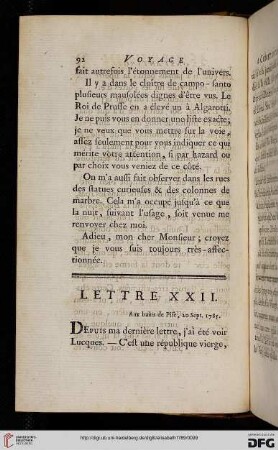 92 VOYAGE
fait autrefois l'étonnement de l'univers.
Il y a dans le cloître de campo-santo
plusieurs mausolées dignes d'être vus. Le
Roi de Prusse en a élevé un à Algarotti.
Je ne puis vous en donner une liste exacte;
je ne veux que vous mettre sur la voie,
assez seulement pour vous indiquer ce qui
mérite votre attention, si par hazard ou
par choix vous veniez de ce côté.
On m'a aussi fait observer dans les rues
des statues curieuses & des colonnes de
marbre. Cela m'a occupé jusqu'à ce que
la nuit, suivant l'usage, soit venue me
renvoyer chez moi.
Adieu, mon cher Monsieur; croyez
que je vous suis toujours très-affec-
tionnée.
LETTRE XXII.
Aux bains de Pise, 20 Sept. 1785.
DEPUIS ma dernière lettre, j'ai été voir
Lucques. — C'est une république vierge,
UNIVERSITÄTS-
BIBLIOTHEK
HEIDELBERG
DFG